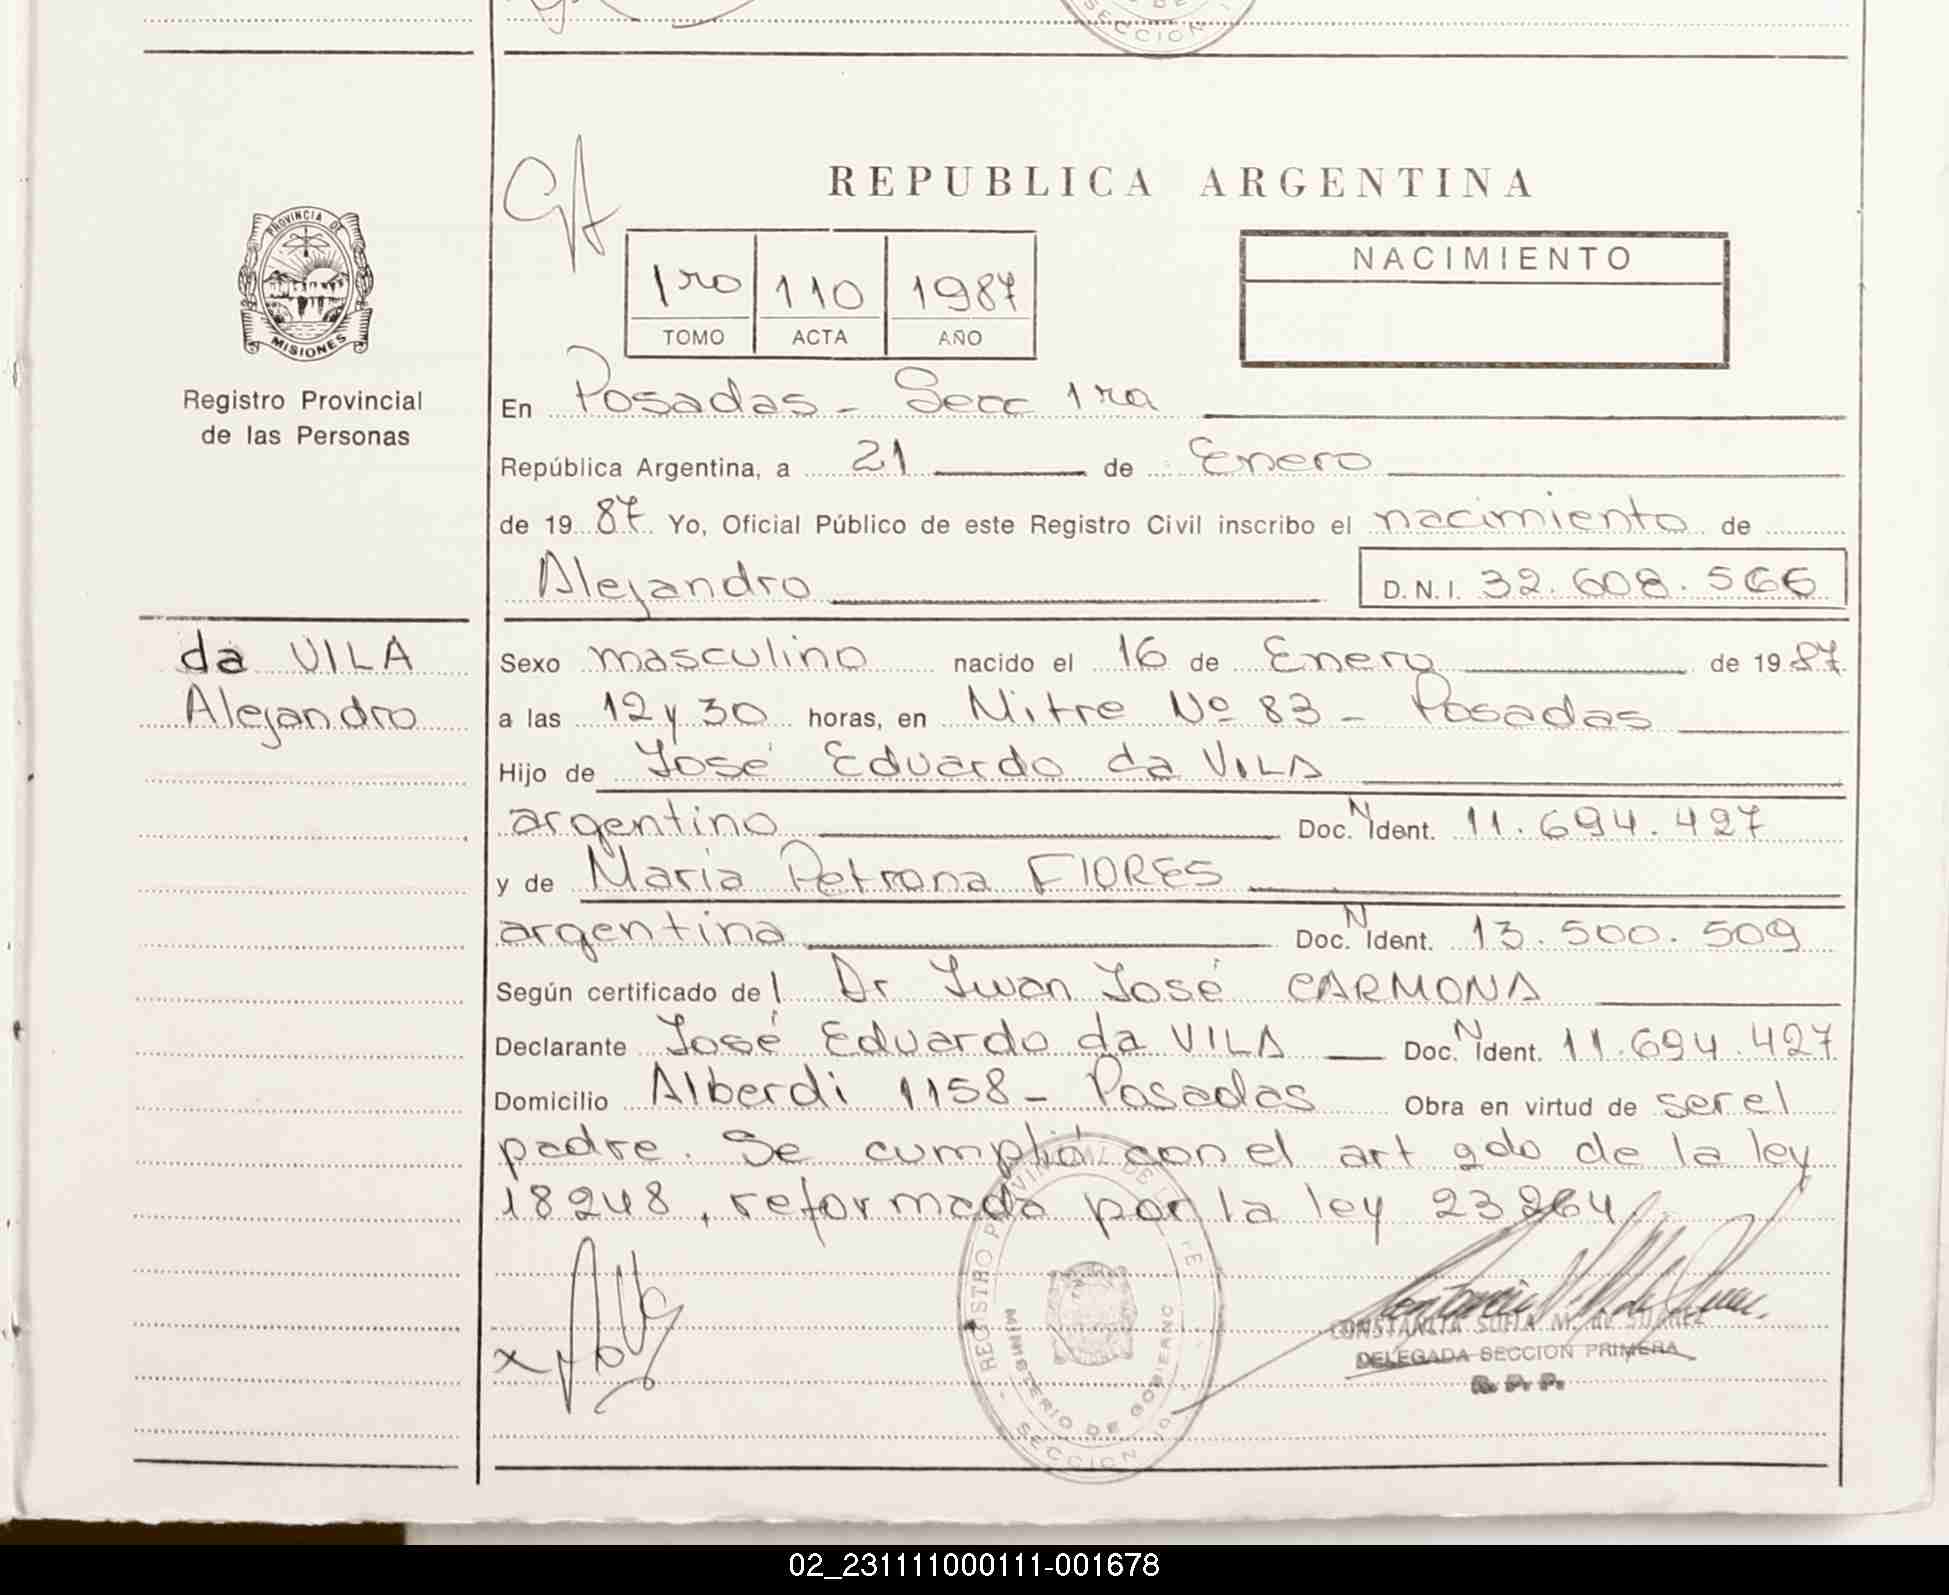 SECCION
REPUBLICA ARGENTINA
PROVINCIA DE
MISIONES
Registro Provincial
de las Personas
NACIMIENTO
1ro 110 1987
TOMO ACTA AÑO
En Posadas - Secc 1ra
República Argentina, a 21 de Enero
de 1987 Yo, Oficial Público de este Registro Civil inscribo el nacimiento de
Alejandro D.N.I. 32.608.566
da VILA
Alejandro
Sexo masculino nacido el 16 de Enero de 1987
a las 12 y 30 horas, en Mitre Nº 83 - Posadas
Hijo de José Eduardo da VILA
argentino Doc. N Ident. 11.694.427
y de Maria Petrona FlORES
argentina Doc. N Ident. 13.500.509
Según certificado del Dr Juan José CARMONA
Declarante José Eduardo da VILA Doc. N Ident. 11.694.427
Domicilio Alberdi 1158 - Posadas Obra en virtud de ser el
padre. Se cumplió con el art 2do de la ley
18248, reformada por la ley 23264.
REGISTRO PROVINCIAL DE
MINISTERIO DE GOBIERNO
SECCION 1º
CONSTANCIA SOFIA M. de SUAREZ
DELEGADA SECCION PRIMERA
R. P. P.
02_231111000111-001678